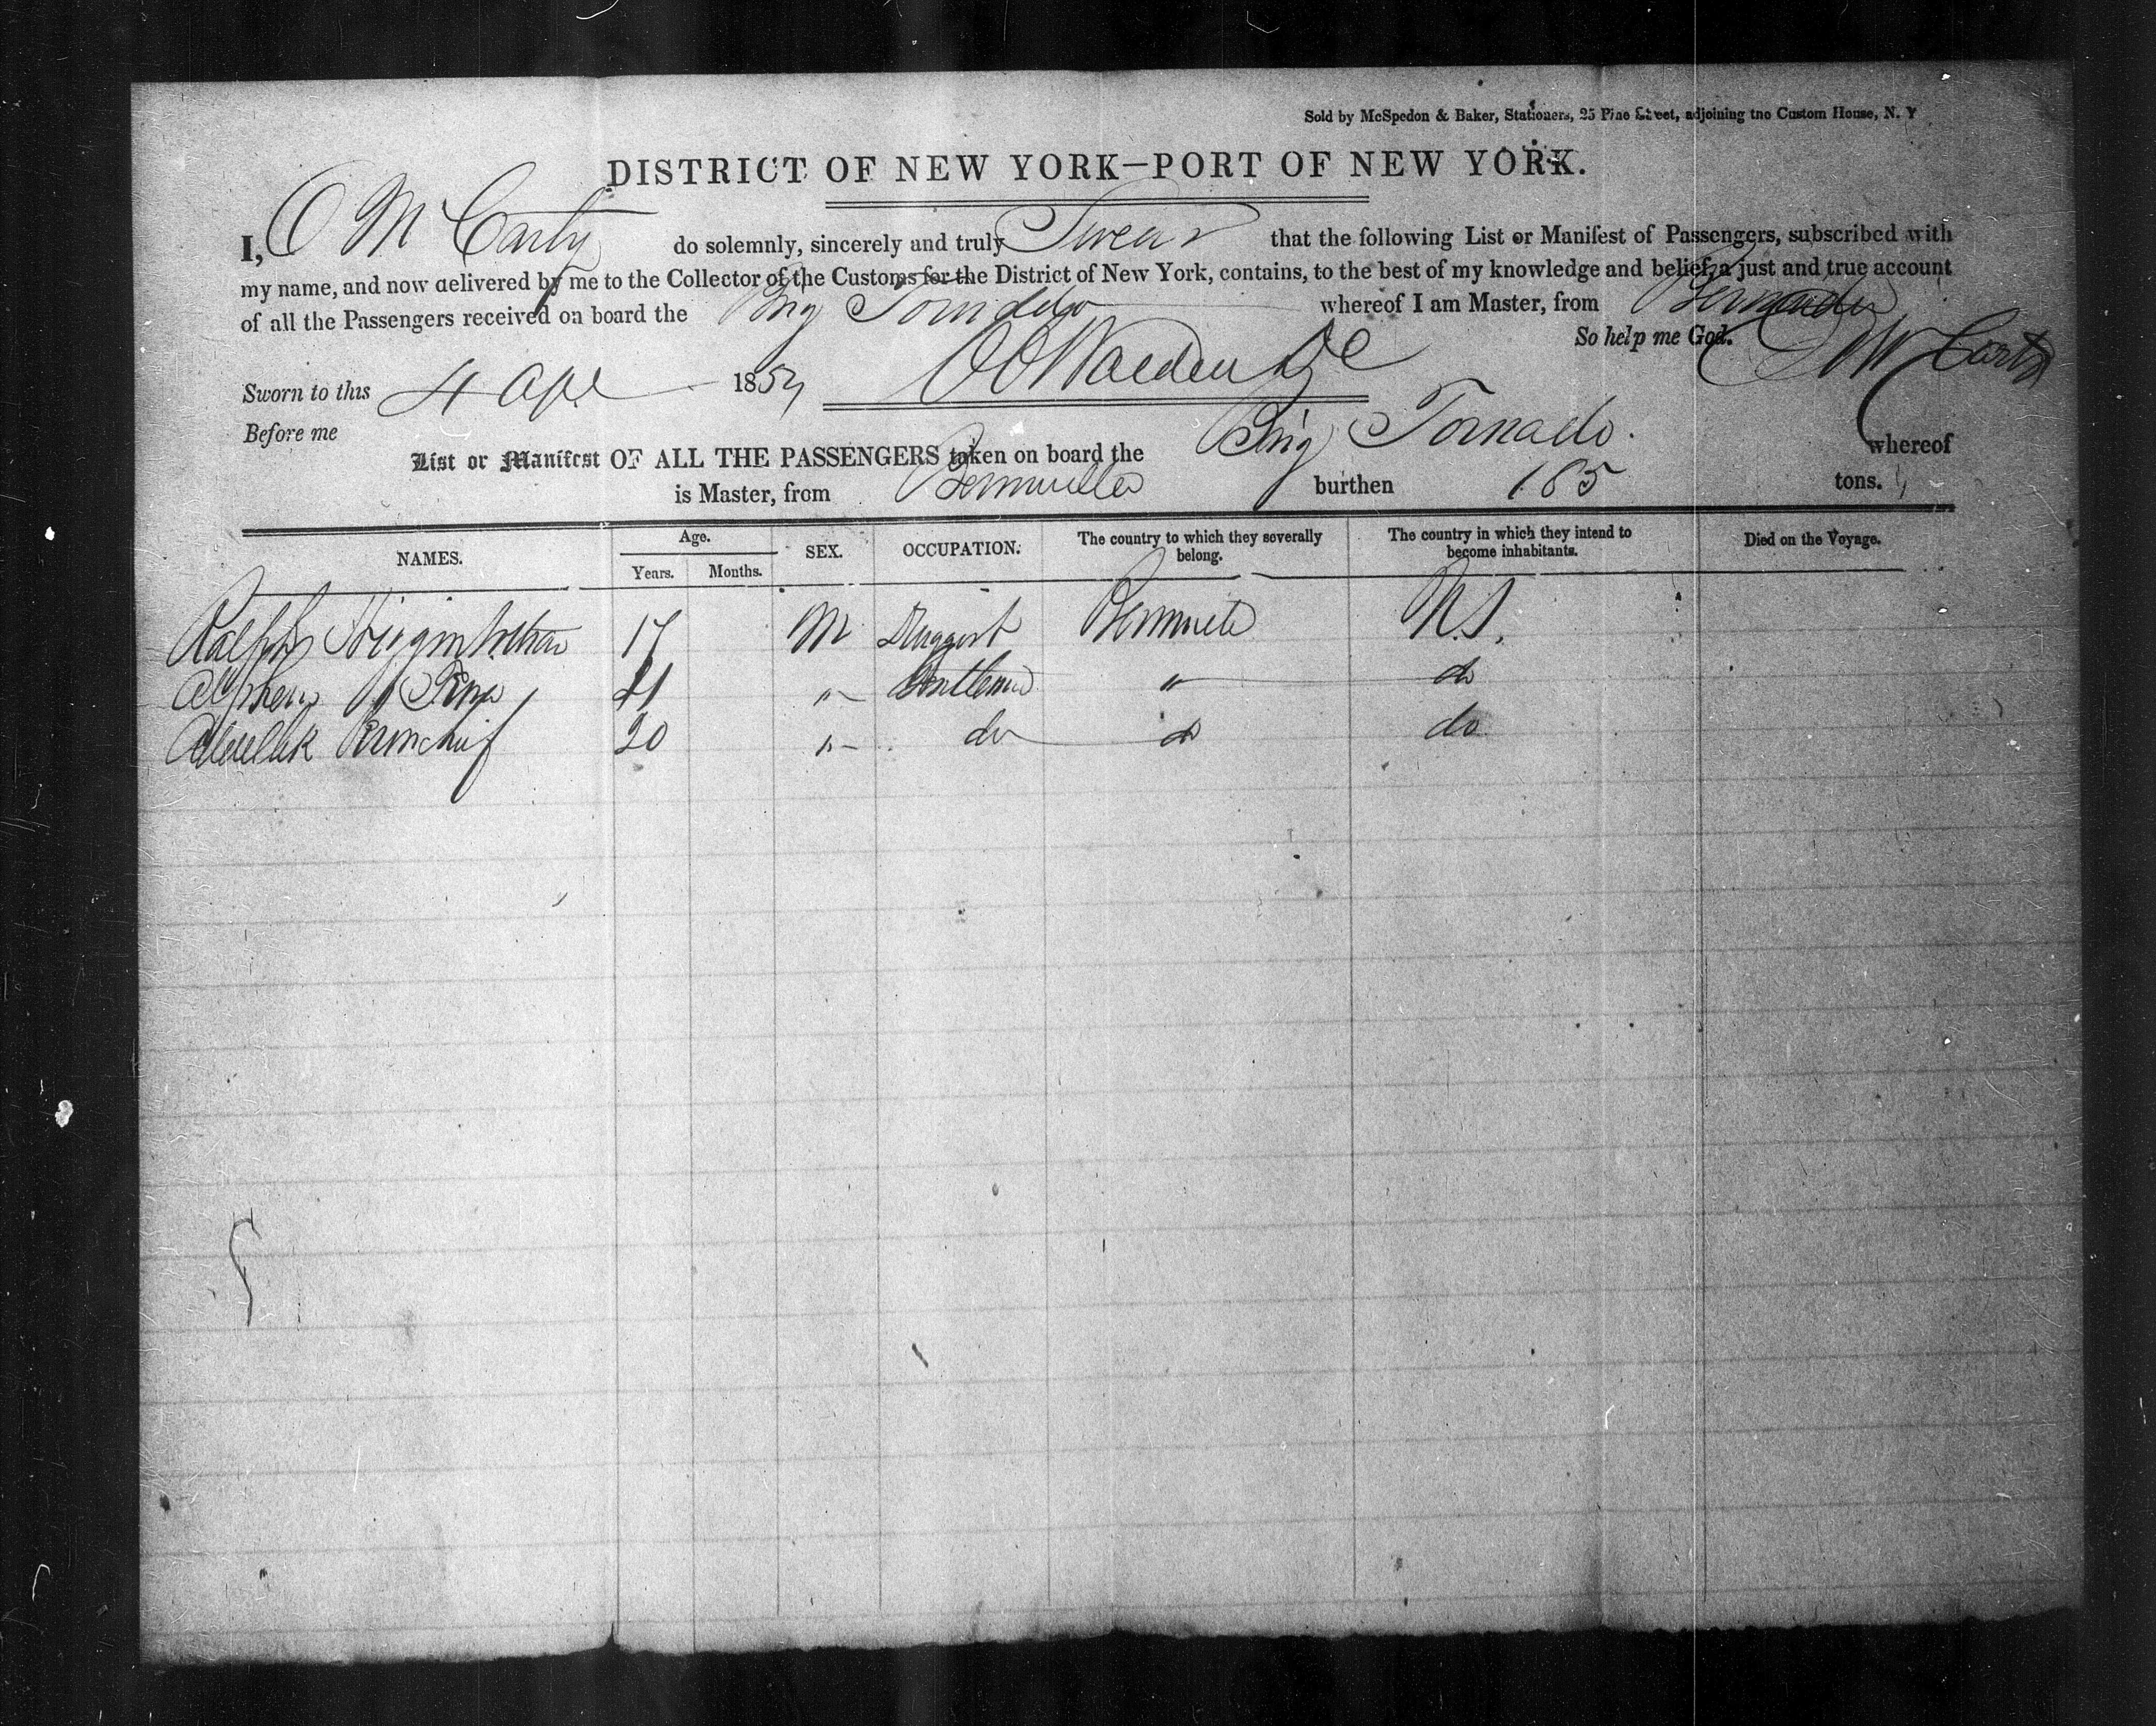 Sold by McSpedon & Baker, Stationers, 25 Pine Street, adjoining the Custom House, N. Y
DISTRICT OF NEW YORK—PORT OF NEW YORK.
I, O McCarty do solemnly, sincerely and truly Swear that the following List or Manifest of Passengers, subscribed with
my name, and now delivered by me to the Collector of the Customs for the District of New York, contains, to the best of my knowledge and belief, a just and true account
of all the Passengers received on board the Brig whereof I am Master, from Bermuda
So help me God.
Sworn to this 4 Apl 185
Before me
List or Manifest OF ALL THE PASSENGERS taken on board the Brig Tornado. whereof
is Master, from Bermuda burthen 185 tons.
NAMES. Age. SEX. OCCUPATION. The country to which they severally belong. The country in which they intend to become inhabitants. Died on the Voyage.
Years. Months.
Ralph 17 M Druggist Bermuda
21 " Gentleman " do
20 " do do do